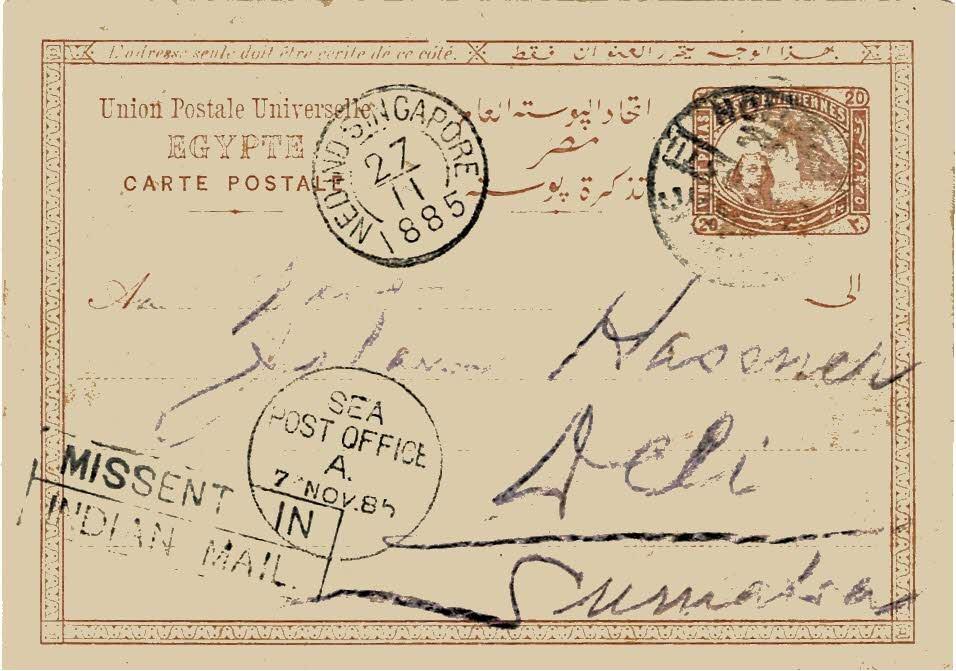 L'adresse seule doit être écrite de ce côté.
بهذا الوجه يتحرر العنوان فقط
Union Postale Universelle
EGYPTE
CARTE POSTALE
اتحاد البوسته العا
مصر
تذكرة بوسته
NED IND SINGAPORE
27
11
1885
20
VINGT PARAS
20
٢٠
Au
الى
Hassner
Deli
Sumatra
SEA
POST OFFICE
A.
7 NOV. 85
MISSENT IN
INDIAN MAIL.